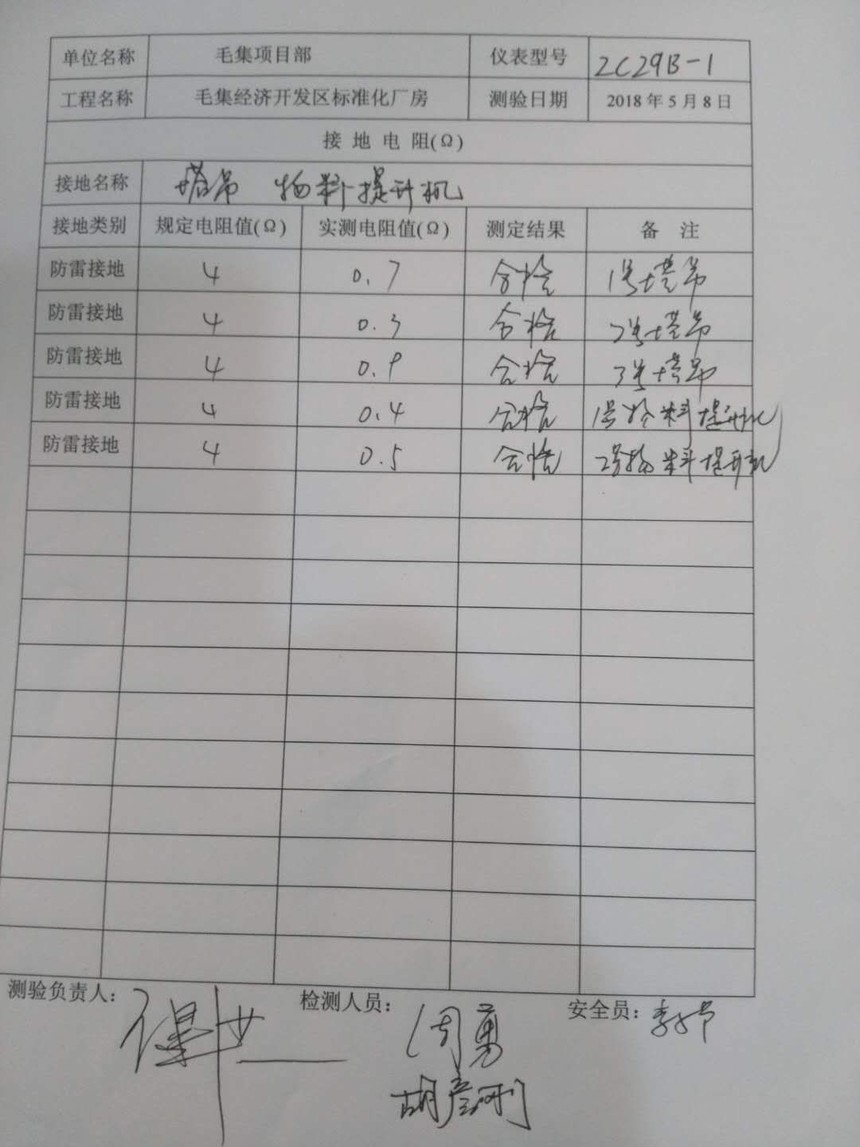 单位名称 毛集项目部 仪表型号 ZC29B-1
工程名称 毛集经济开发区标准化厂房 测验日期 2018年5月8日
接地电阻(Ω)
接地名称 塔吊 物料提升机
接地类别 规定电阻值(Ω) 实测电阻值(Ω) 测定结果 备注
防雷接地 4 0.7 合格 1号塔吊
防雷接地 4 0.3 合格 2号塔吊
防雷接地 4 合格 3号塔吊
防雷接地 4 0.4 合格 1号物料提升机
防雷接地 4 0.5 合格 2号物料提升机
测验负责人: 检测人员: 周勇 安全员:
胡彦刚